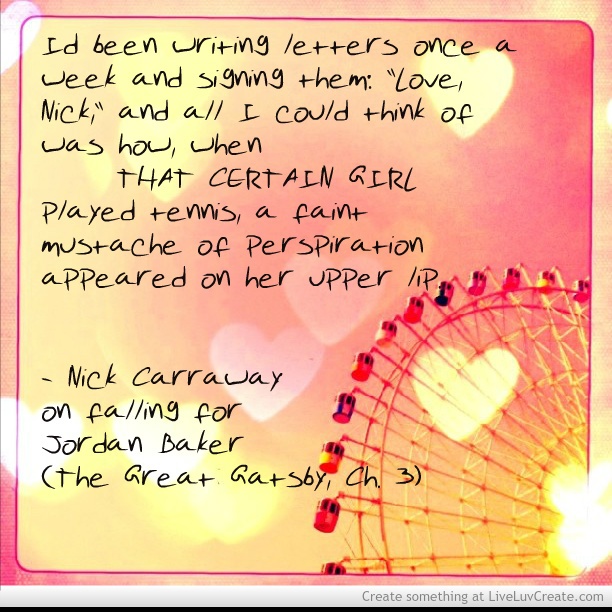 Id been writing letters once a
week and signing them: "Love,
Nick," and all I could think of
was how, when
THAT CERTAIN GIRL
Played tennis, a faint
mustache of perspiration
appeared on her upper lip.
- Nick Carraway
on falling for
Jordan Baker
(The Great Gatsby, Ch. 3)
Create something at LiveLuvCreate.com